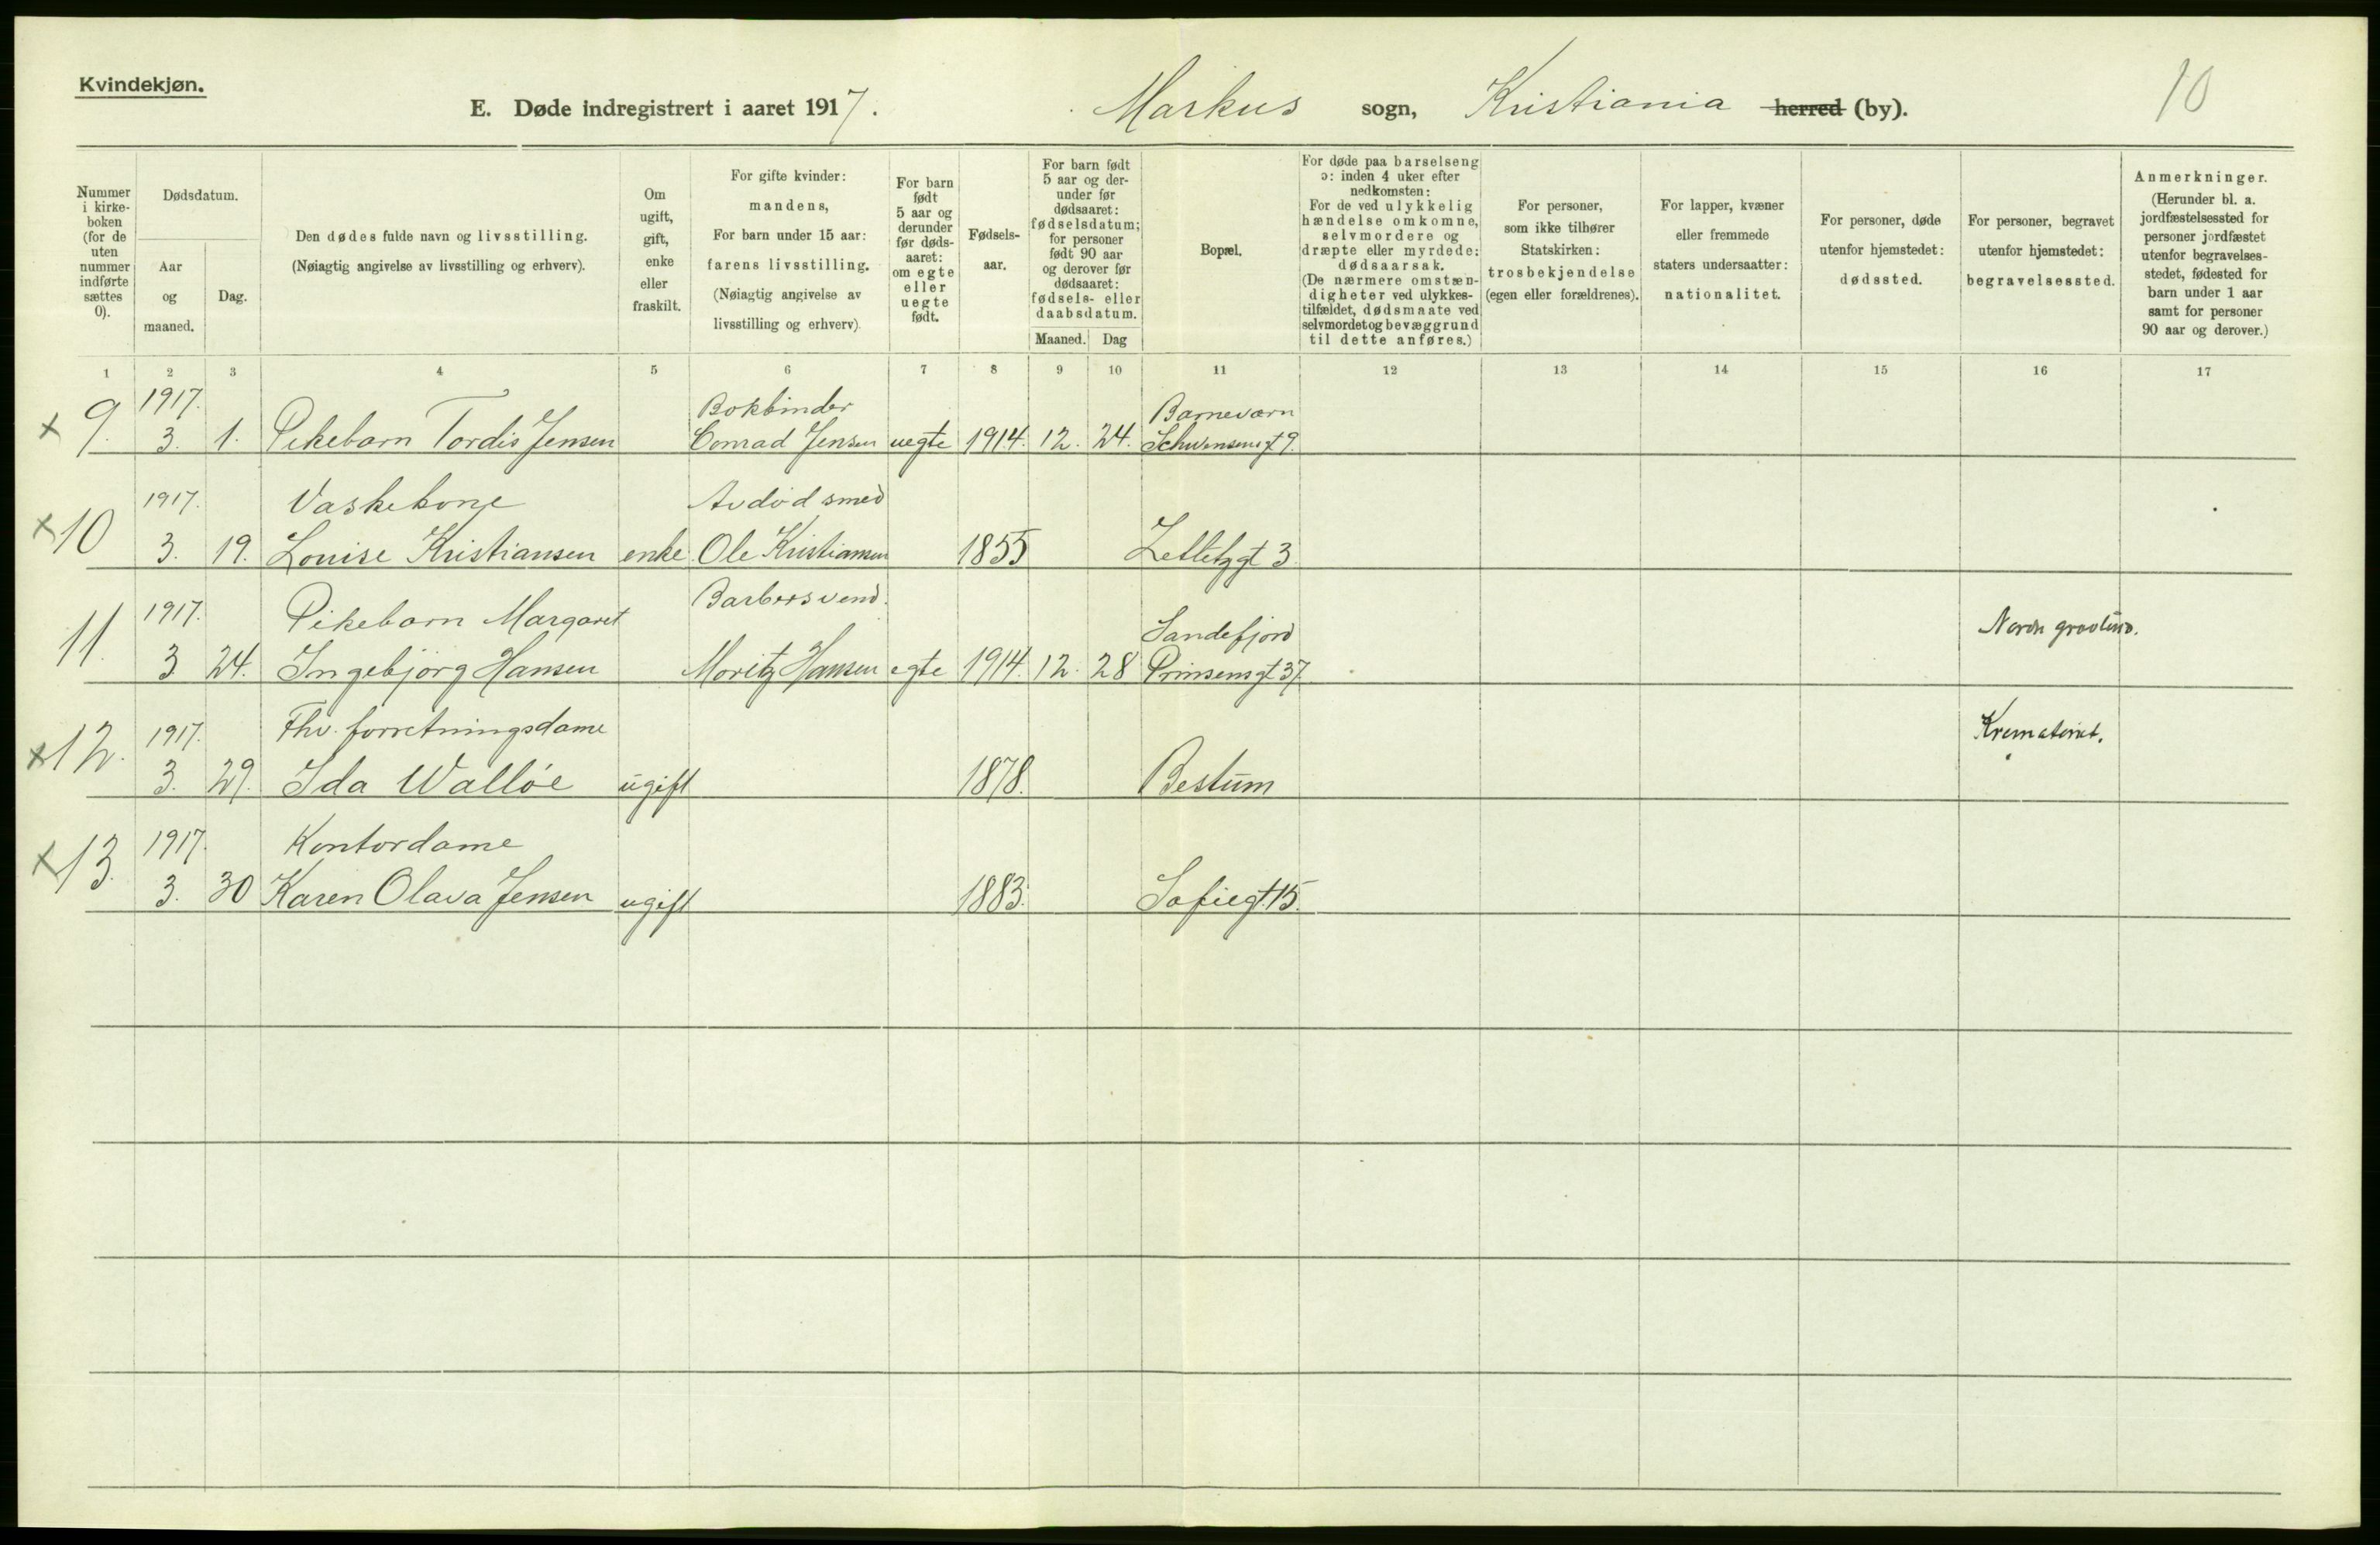 Kvindekjøn.
E. Døde indregistrert i aaret 1917.
Markus sogn, Kristiania herred (by).
10
Nummer i kirke- boken (for de uten nummer indførte sættes 0).
Dødsdatum.
Aar og maaned.
Dag.
Den dødes fulde navn og livsstilling.
(Nøiagtig angivelse av livsstilling og erhverv).
Om ugift, gift, enke eller fraskilt.
For gifte kvinder:
mandens,
For barn under 15 aar:
farens livsstilling.
(Nøiagtig angivelse av
livsstilling og erhverv).
For barn født 5 aar og derunder før døds- aaret: om egte eller uegte født.
Fødsels- aar.
For barn født
5 aar og der-
under før
dødsaaret:
fødselsdatum;
for personer
født 90 aar
og derover før
dødsaaret:
fødsels- eller
daabsdatum.
Maaned. Dag
Bopæl.
For døde paa barselseng
ɔ: inden 4 uker efter
nedkomsten:
For de ved ulykkelig
hændelse omkomne,
selvmordere og
dræpte eller myrdede:
dødsaarsak.
(De nærmere omstæn-
digheter ved ulykkes-
tilfældet, dødsmaate ved
selvmordet og bevæggrund
til dette anføres.)
For personer,
som ikke tilhører
Statskirken:
trosbekjendelse
(egen eller forældrenes).
For lapper, kvæner
eller fremmede
staters undersaatter:
nationalitet.
For personer, døde
utenfor hjemstedet:
dødssted.
For personer, begravet
utenfor hjemstedet:
begravelsessted.
Anmerkninger.
(Herunder bl. a.
jordfæstelsessted for
personer jordfæstet
utenfor begravelses-
stedet, fødested for
barn under 1 aar
samt for personer
90 aar og derover.)
1 2 3 4 5 6 7 8 9 10 11 12 13 14 15 16 17
1917. Bokbinder Barnevarn
x 9. 3. 1. Pikebarn Tordis Jensen Conrad Jensen uegte 1914. 12. 24. Schwensensgt 9.
1917. Vaskekone Avdød smed
x 10 3. 19. Louise Kristiansen enke Ole Kristiansen 1855 Zetlitzgt 3
1917. Pikebarn Margaret Barbersvend. Sandefjord Nordre gravlund.
11. 3 24. Ingebjörg Hansen Moritz Hansen egte 1914. 12. 28 Prinsensgt 37.
1917. Fhv. forretningsdame Krematoriet.
x 12. 3. 29. Ida Walløe ugift 1878. Bestum
1917. Kontordame
x 13. 3. 30 Karen Olava Jensen ugift 1883. Sofiegt. 15.